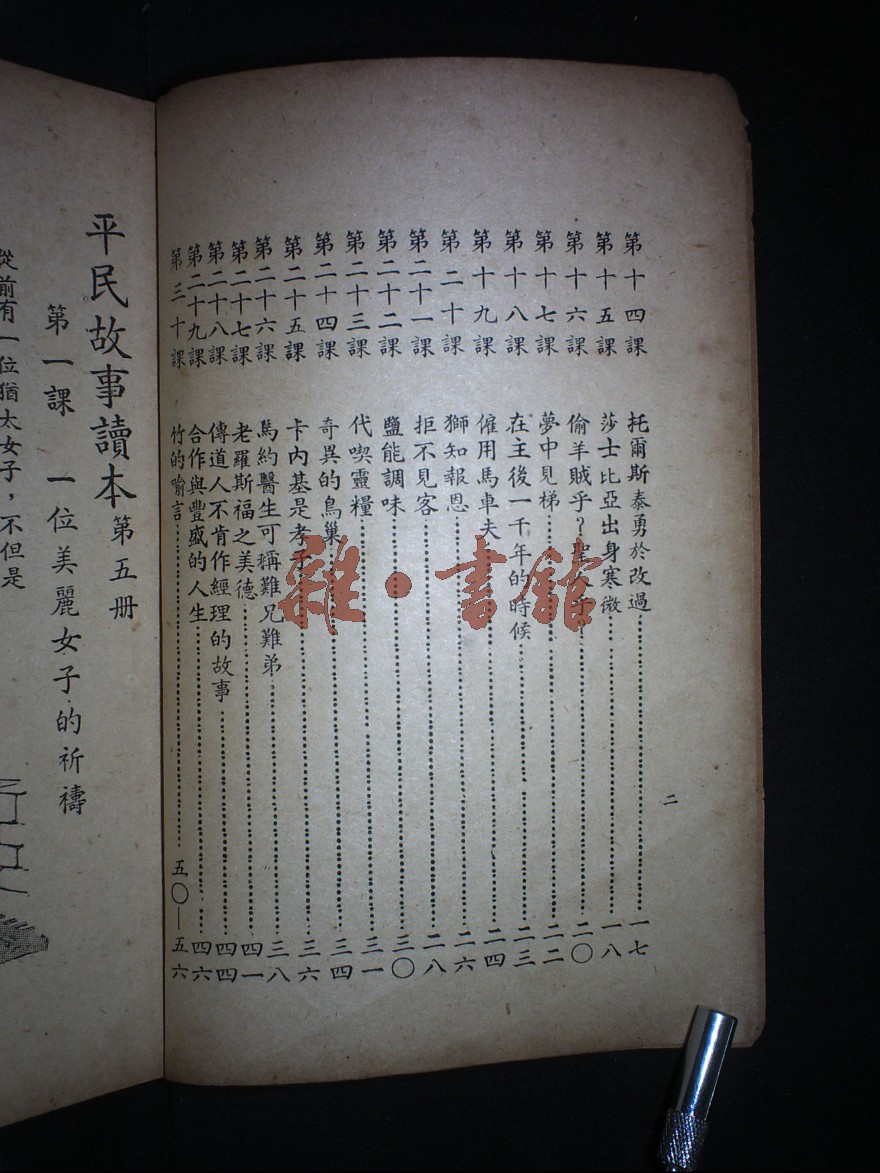 第十四課 托爾斯泰勇於改過 一七
第十五課 莎士比亞出身寒微 一八
第十六課 偷羊賊乎？聖人乎？ 二〇
第十七課 夢中見梯 二二
第十八課 在主後一千年的時候 二三
第十九課 僱用馬車夫 二四
第二十課 獅知報恩 二六
第二十一課 拒不見客 二八
第二十二課 鹽能調味 三〇
第二十三課 代喫靈糧 三一
第二十四課 奇異的鳥巢 三四
第二十五課 卡內基是孝子 三六
第二十六課 馬約醫生可稱難兄難弟 三八
第二十七課 老羅斯福之美德 四一
第二十八課 傳道人不肯作經理的故事 四四
第二十九課 合作與豐盛的人生 四六
第三十課 竹的喻言 五〇—五六
二
平民故事讀本 第五册
第一課 一位美麗女子的祈禱
從前有一位猶太女子，不但是
雜·書館